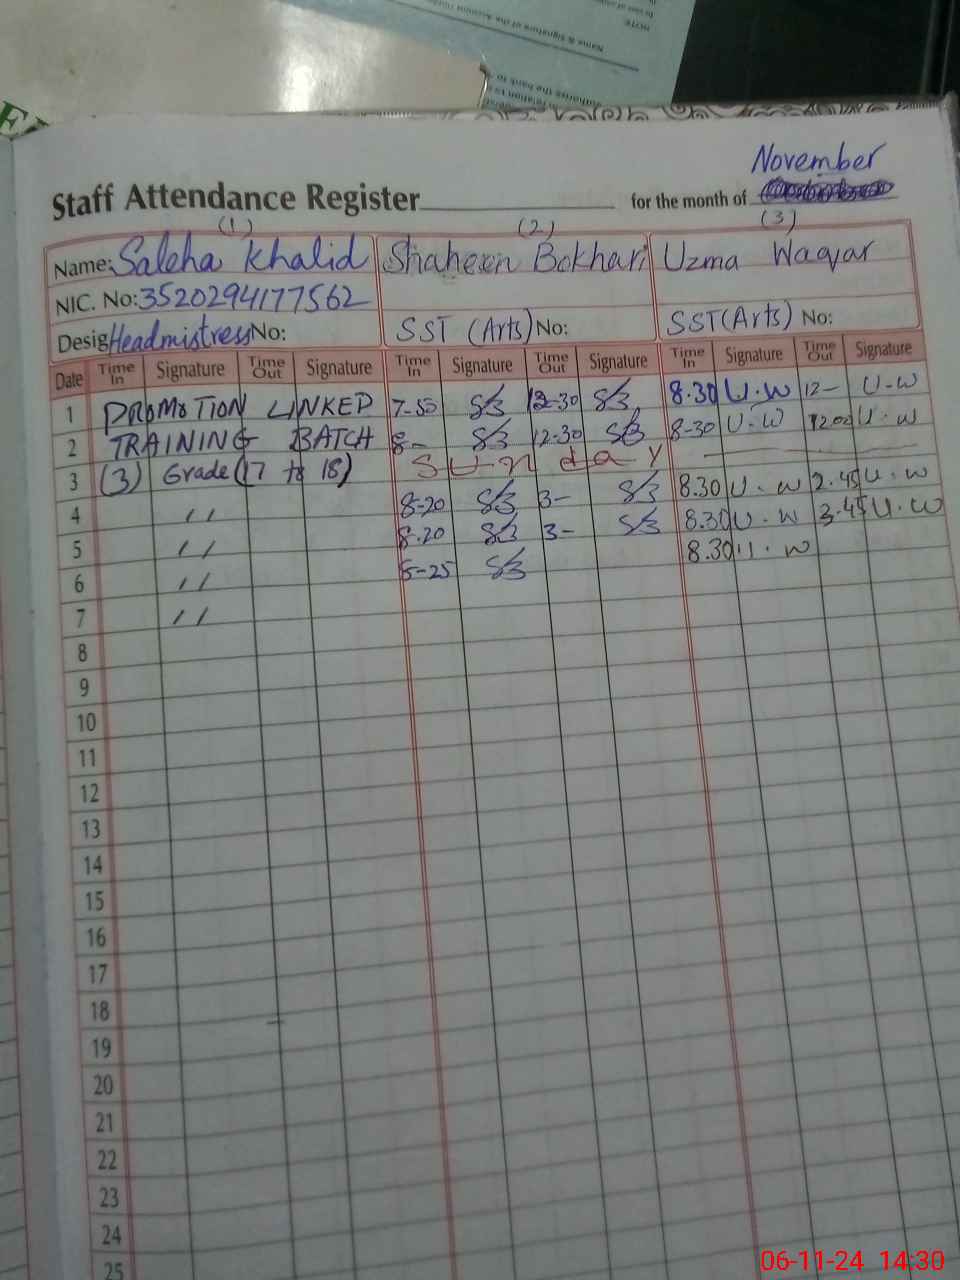 Name & Signature of the Account
NOTE
November
Staff Attendance Register for the month of
(1) (2) (3)
Name: Saleha Khalid Shaheen Bokhari Uzma Waqar
NIC. No: 3520294177562
Desig Headmistress No: SST (Arts) No: SST (Arts) No:
Date Time In Signature Time Out Signature Time In Signature Time Out Signature Time In Signature Time Out Signature
1 PROMOTION LINKED 7-50 12-30 8.30 U.W 12- U-W
2 TRAINING BATCH 8- 12-30 8-30 U.W 12.00 U.W
3 (3) Grade (17 to 18) Sunday
4 " 8-20 3- 8.30 U.W 2.45 U.W
5 " 8.20 3- 8.30 U.W 3.45 U.W
6 " 8-25 8.30 U.W
7 "
8
9
10
11
12
13
14
15
16
17
18
19
20
21
22
23
24
25
06-11-24 14:30